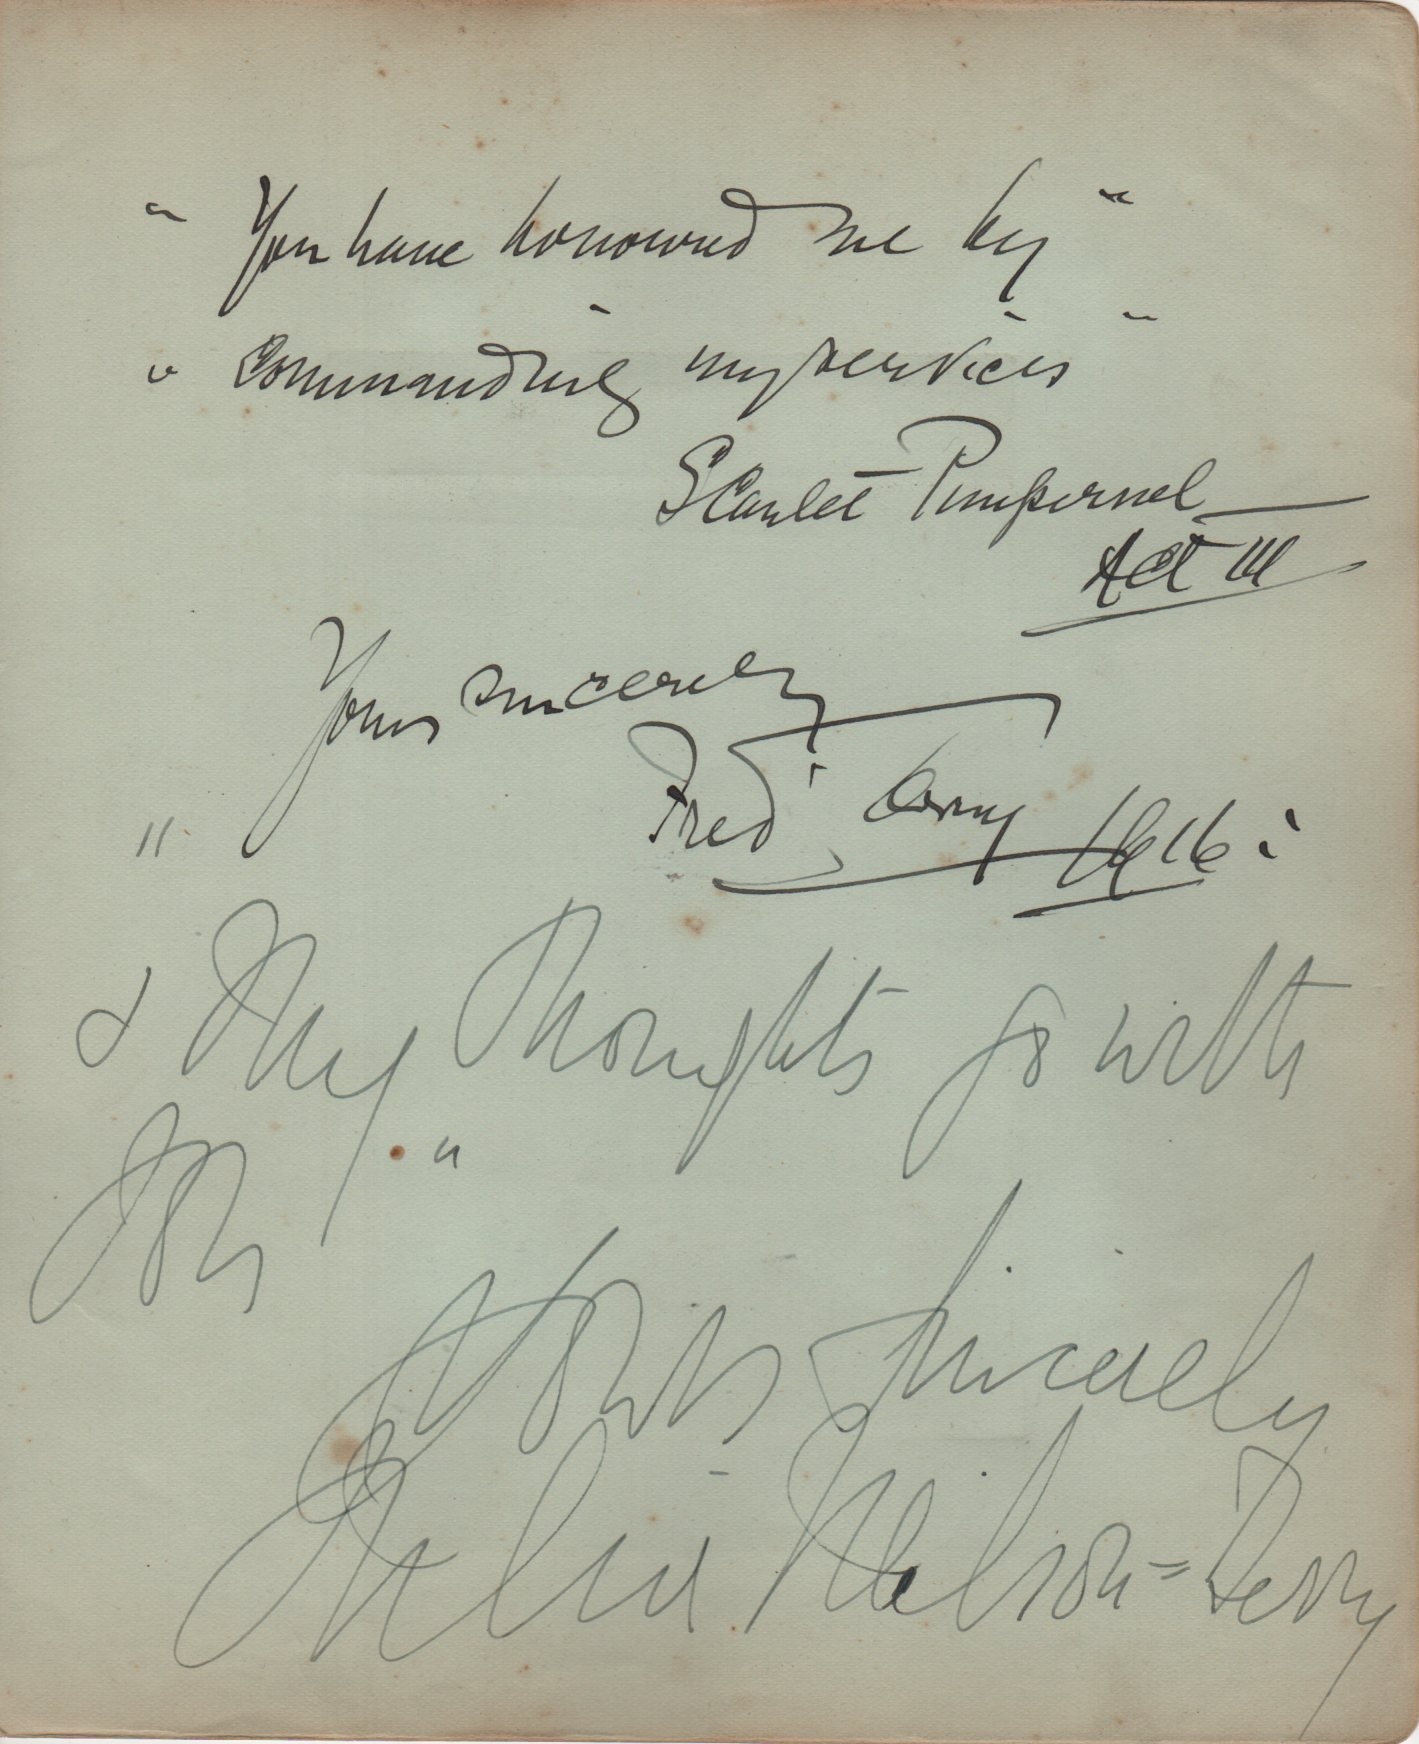 " You have honoured me by "
" commanding my services "
Scarlet Pimpernel
Act III
Yours sincerely
Fred Terry 1916.
"
& My thoughts go with
you "
Yours Sincerely
Julia Neilson = Terry